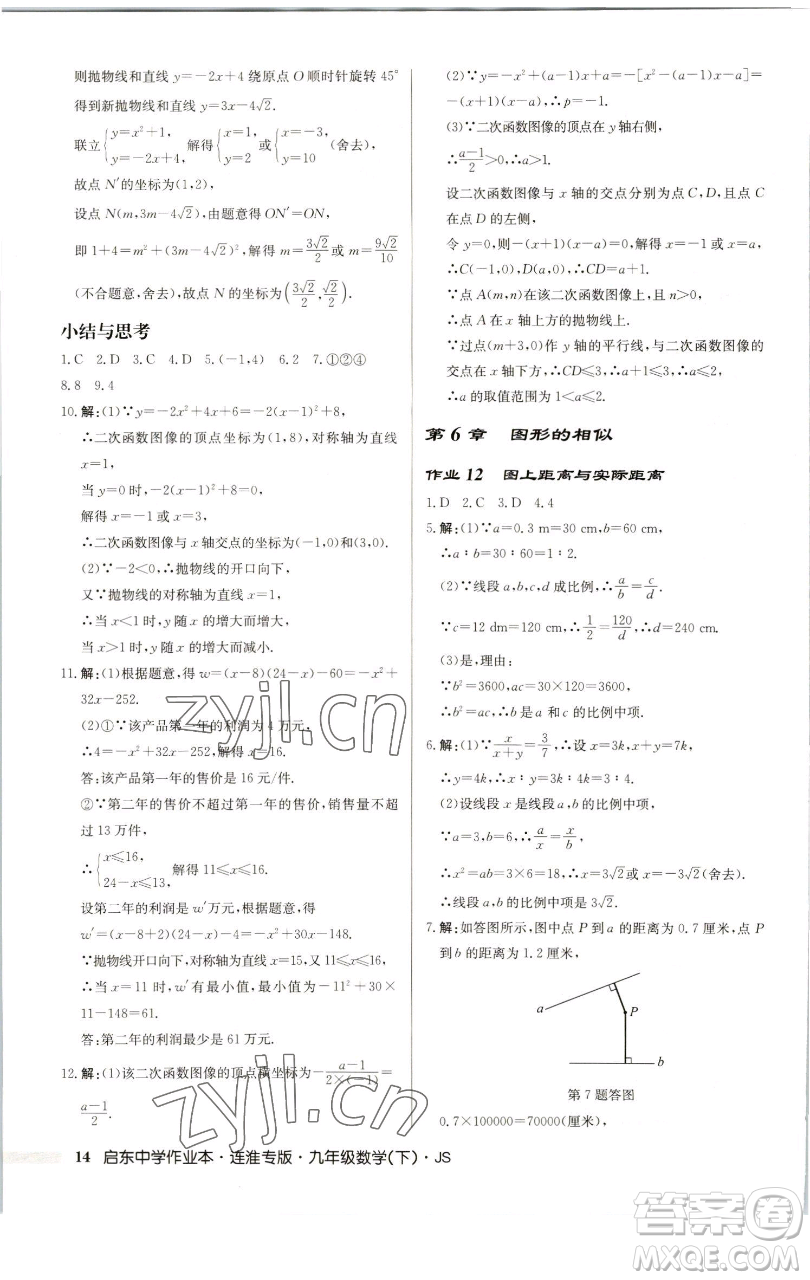 则抛物线和直线 y=-2x+4 绕原点 O 顺时针旋转 45°
得到新抛物线和直线 y=3x-4√2.
联立{y=x²+1, y=-2x+4, 解得{x=1, y=2 或{x=-3, y=10 (舍去),
故点 N′的坐标为(1,2),
设点 N(m,3m-4√2),由题意得 ON′=ON,
即 1+4=m²+(3m-4√2)²,解得 m=3√2/2 或 m=9√2/10
(不合题意,舍去),故点 N 的坐标为(3√2/2,√2/2).
小结与思考
1.C 2.D 3.C 4.D 5.(-1,4) 6.2 7.①②④
8.8 9.4
10.解:(1)∵y=-2x²+4x+6=-2(x-1)²+8,
∴二次函数图像的顶点坐标为(1,8),对称轴为直线
x=1,
当 y=0 时,-2(x-1)²+8=0,
解得 x=-1 或 x=3,
∴二次函数图像与 x 轴交点的坐标为(-1,0)和(3,0).
(2)∵-2<0,∴抛物线的开口向下,
又∵抛物线的对称轴为直线 x=1,
∴当 x<1 时,y 随 x 的增大而增大,
当 x>1 时,y 随 x 的增大而减小.
11.解:(1)根据题意,得 w=(x-8)(24-x)-60=-x²+
32x-252.
(2)①∵该产品第一年的利润为 4 万元,
∴4=-x²+32x-252,解得 x=16.
答:该产品第一年的售价是 16 元/件.
②∵第二年的售价不超过第一年的售价,销售量不超
过 13 万件,
∴{x≤16, 24-x≤13, 解得 11≤x≤16.
设第二年的利润是 w′万元,根据题意,得
w′=(x-8+2)(24-x)-148=-x²+30x-148.
∵抛物线开口向下,对称轴为直线 x=15,又 11≤x≤16,
∴当 x=11 时,w′有最小值,最小值为-11²+30×
11-148=61.
答:第二年的利润最少是 61 万元.
12.解:(1)该二次函数图像的顶点横坐标为-(a-1)/(2×(-1))=
(a-1)/2.
(2)∵y=-x²+(a-1)x+a=-[x²-(a-1)x-a]=
-(x+1)(x-a),∴p=-1.
(3)∵二次函数图像的顶点在 y 轴右侧,
∴(a-1)/2>0,∴a>1.
设二次函数图像与 x 轴的交点分别为点 C,D,且点 C
在点 D 的左侧,
令 y=0,则-(x+1)(x-a)=0,解得 x=-1 或 x=a.
∴C(-1,0),D(a,0),∴CD=a+1.
∵点 A(m,n)在该二次函数图像上,且 n>0,
∴点 A 在 x 轴上方的抛物线上.
∵过点(m+3,0)作 y 轴的平行线,与二次函数图像的
交点在 x 轴下方,∴CD≤3,∴a+1≤3,∴a≤2,
∴a 的取值范围为 1<a≤2.
第 6 章 图形的相似
作业 12 图上距离与实际距离
1.D 2.C 3.D 4.4
5.解:(1)∵a=0.3 m=30 cm,b=60 cm,
∴a∶b=30∶60=1∶2.
(2)∵线段 a,b,c,d 成比例,∴a/b=c/d.
∵c=12 dm=120 cm,∴1/2=120/d,∴d=240 cm.
(3)是,理由:
∵b²=3600,ac=30×120=3600,
∴b²=ac,∴b 是 a,c 的比例中项.
6.解:(1)∵x/(x+y)=3/7,∴设 x=3k,x+y=7k,
∴y=4k,∴x∶y=3k∶4k=3∶4.
(2)设线段 x 是线段 a,b 的比例中项,
∵a=3,b=6,∴a/x=x/b,
∴x²=ab=3×6=18,∴x=3√2或 x=-3√2(舍去).
∴线段 a,b 的比例中项是 3√2.
7.解:如答图所示,图中点 P 到 a 的距离为 0.7 厘米,点 P
到 b 的距离为 1.2 厘米,
a
P
b
第 7 题答图
0.7×100000=70000(厘米),
14 启东中学作业本·连淮专版·九年级数学(下)·JS
zyjl.cn
zyjl.cn
答案圈
MXQE.COM